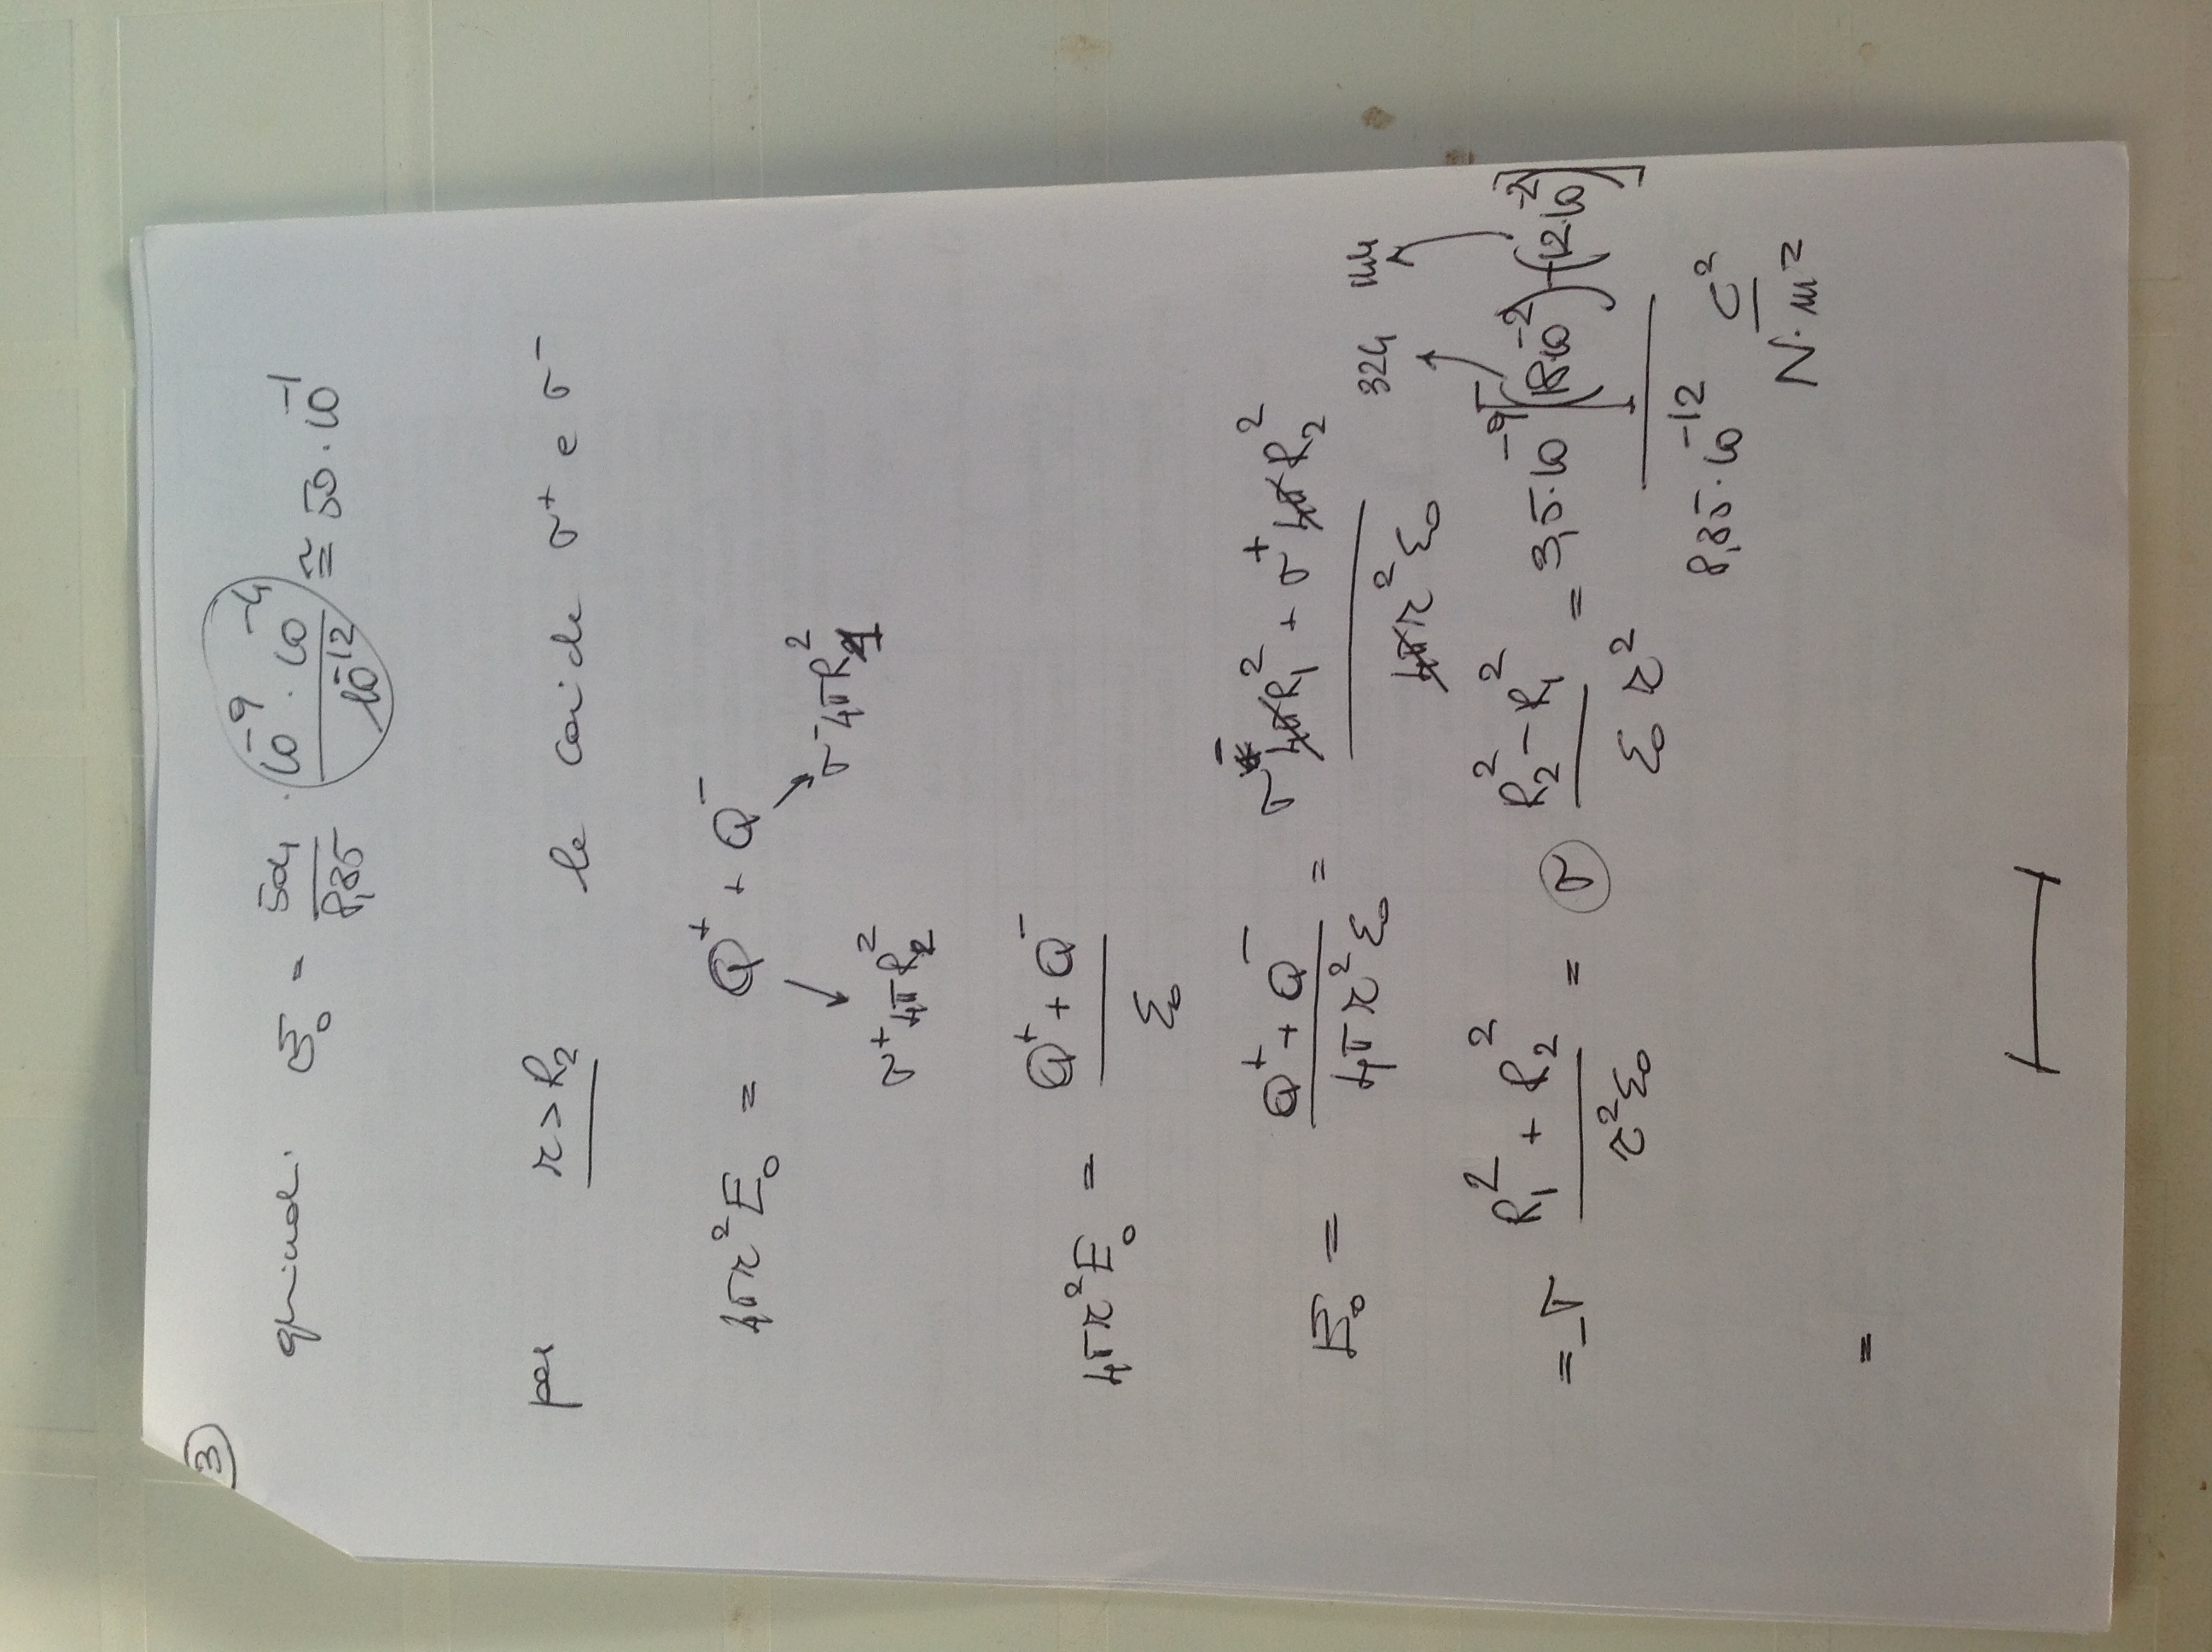 3
quindi E₀ = 504/8,85 · (10⁻⁹ · 10⁻⁴)/10⁻¹² ≅ 50 · 10⁻¹
per r > R₂ le cariche σ⁺ e σ⁻
4πr²E₀ = Q⁺ + Q⁻
σ⁻4πR₁²
σ⁺4πR₂²
4πr²E₀ = (Q⁺ + Q⁻)/ε₀
E₀ = (Q⁺ + Q⁻)/(4πr²ε₀) = (σ⁻4πR₁² + σ⁺4πR₂²)/(4πr²ε₀)
324 144
= -σ (R₁² + R₂²)/(r²ε₀) = σ (R₂² - R₁²)/(ε₀ r²) = 3,5·10⁻⁹[(18·10⁻²) - (12·10⁻²)]/(8,85·10⁻¹² C²/(N·m²))
=